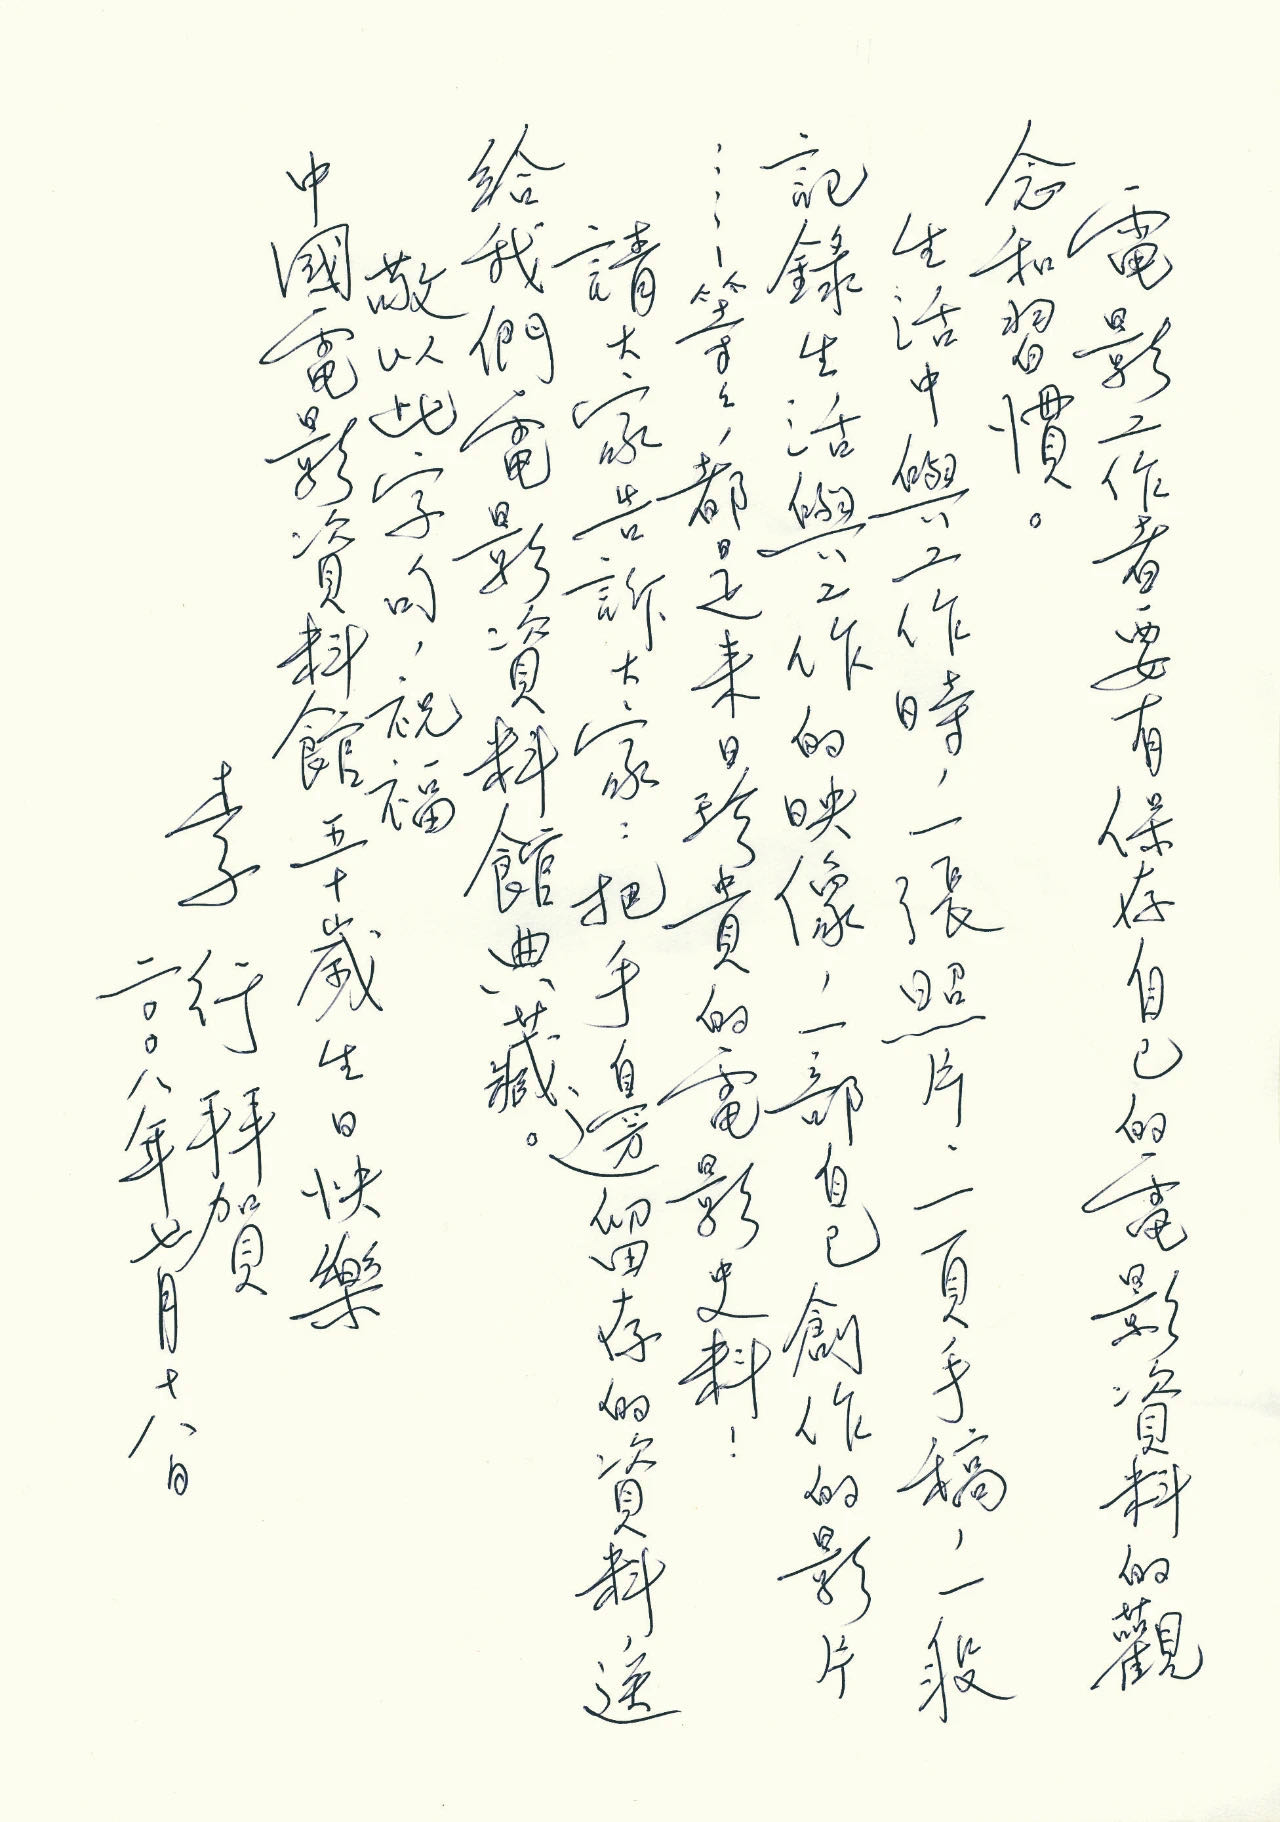 電影工作者要有保存自己的電影資料的觀
念和習慣。
生活中與工作時，一張照片、一頁手稿，一段
記錄生活與工作的映像，一部自己創作的影片
……等等，都是來日珍貴的電影史料！
請大家告訴大家：把手邊留存的資料，送
給我們電影資料館典藏。
敬以此字句，祝福
中國電影資料館五十歲生日快樂
李行 拜賀
二〇〇八年七月十八日